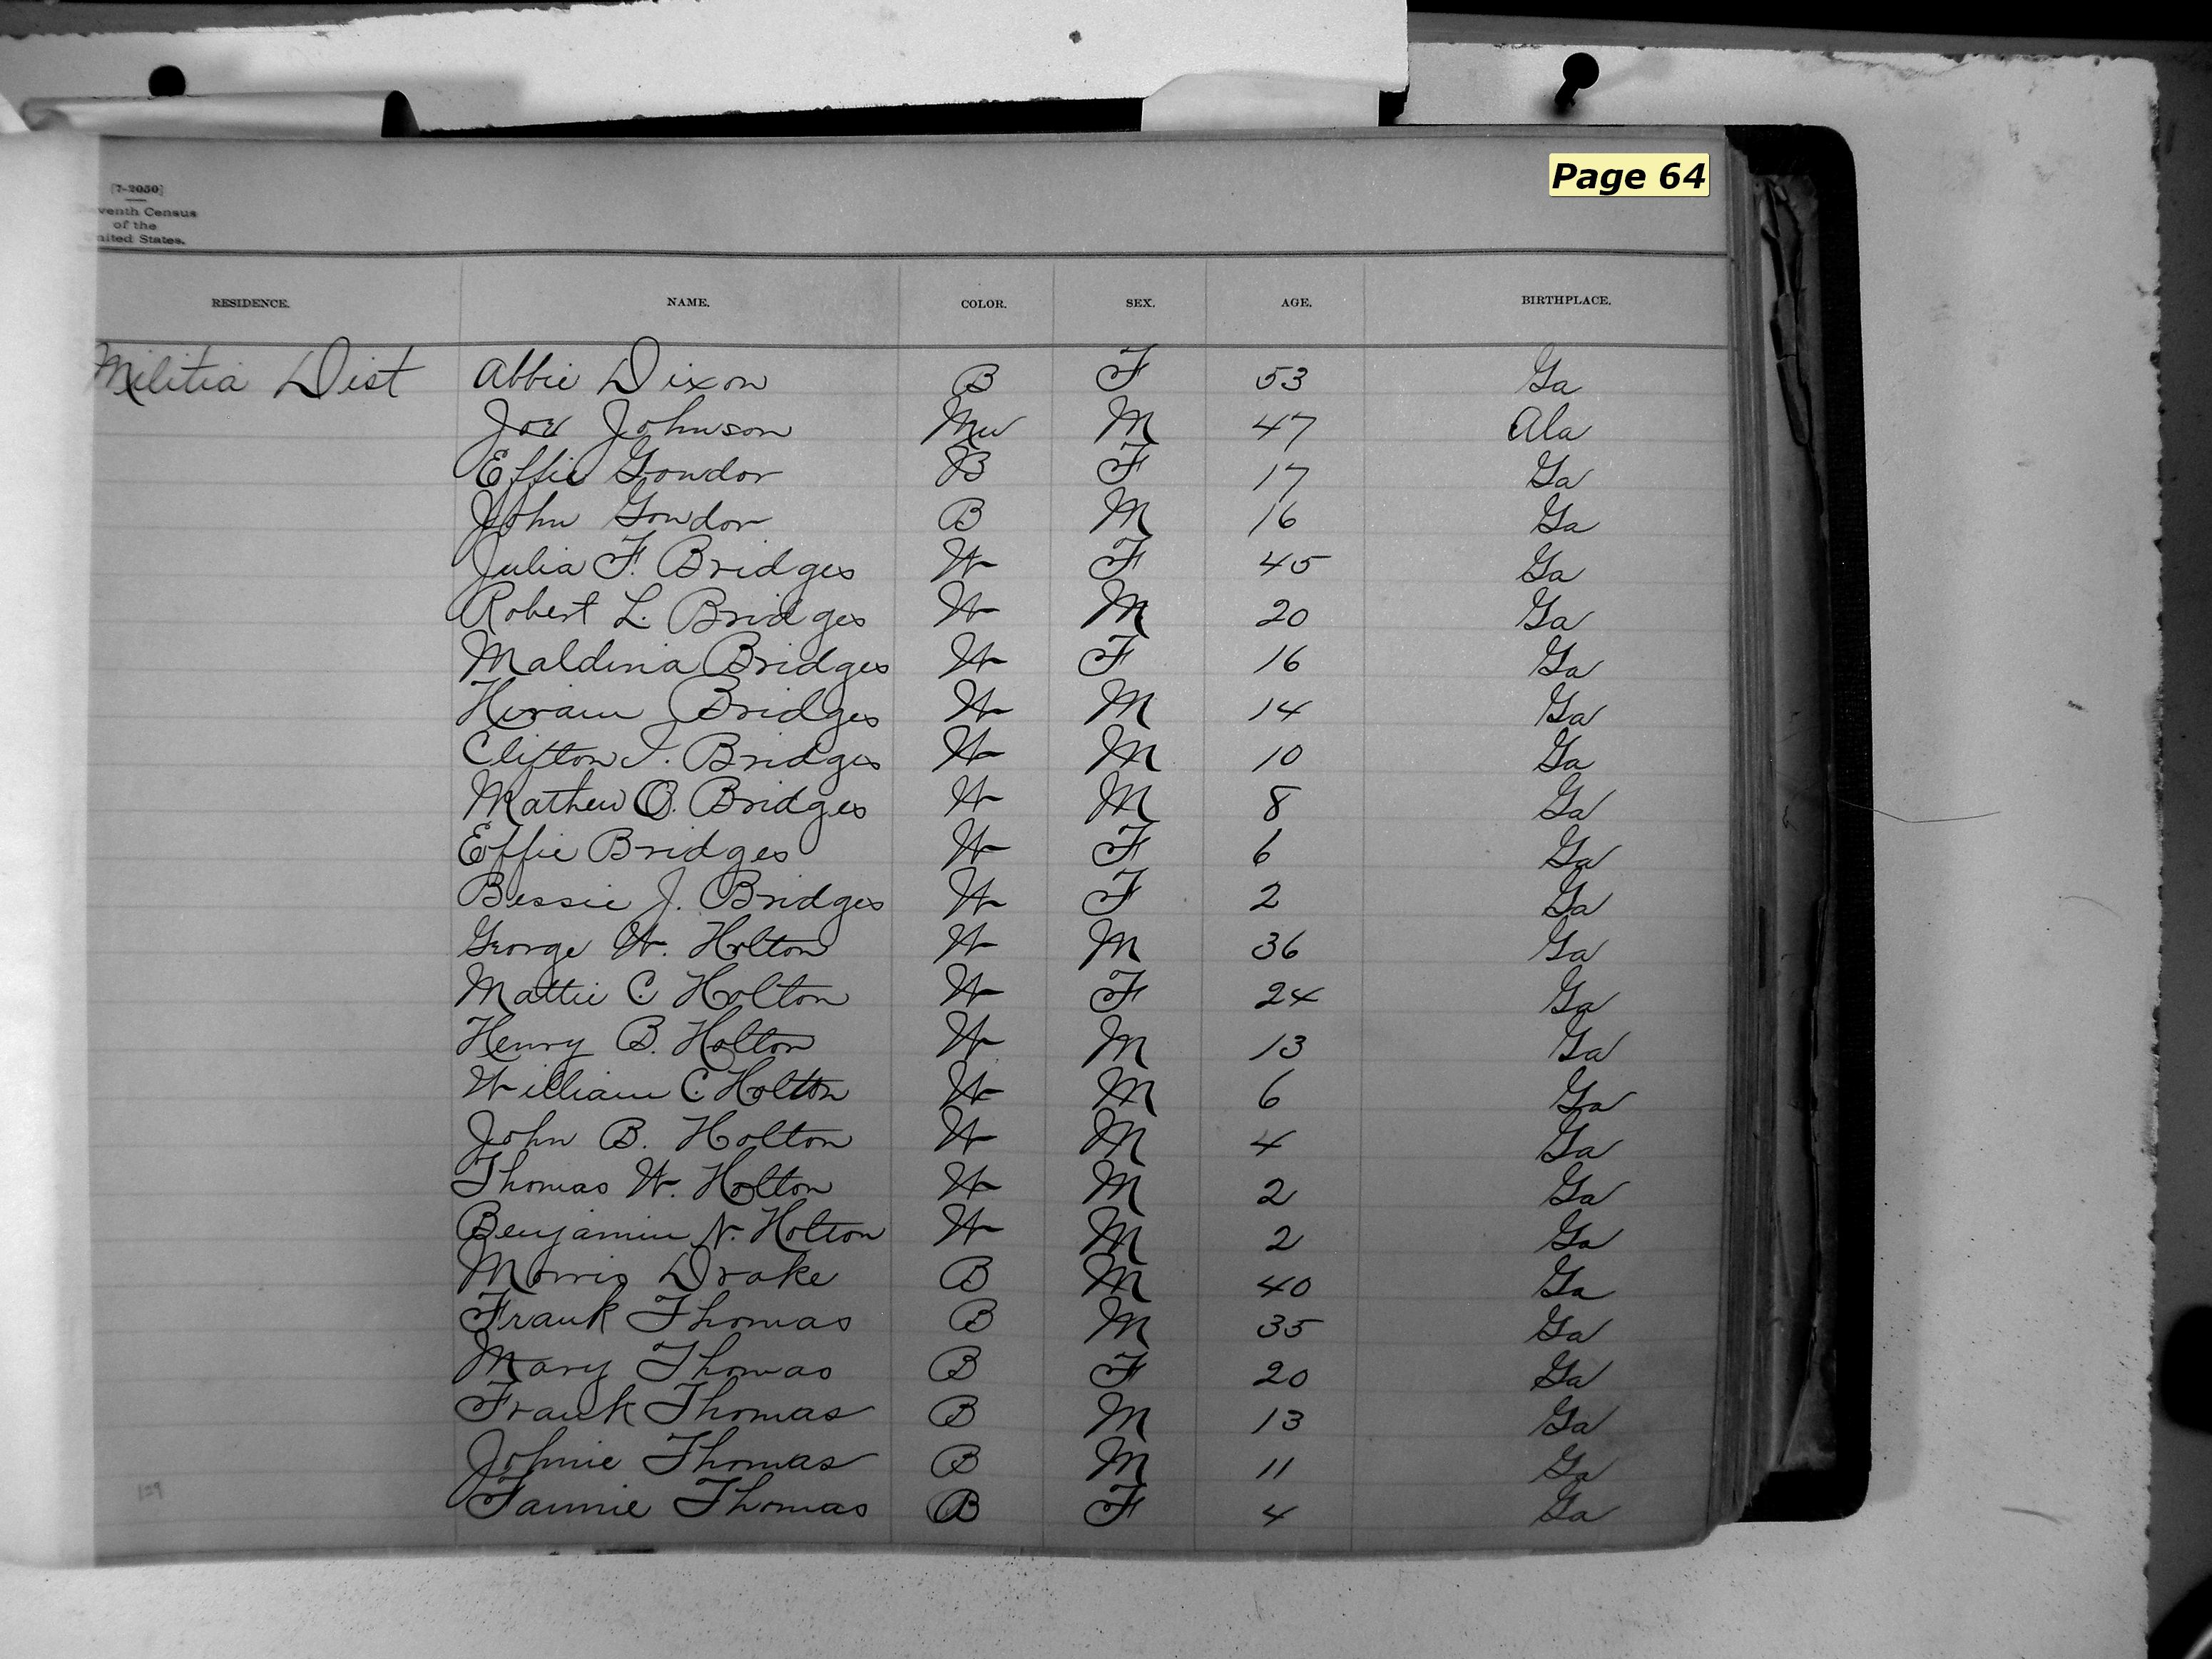 Page 64
[7-2050]
venth Census
of the
nited States.
RESIDENCE. NAME. COLOR. SEX. AGE. BIRTHPLACE.
Militia Dist Abbie Dixon B F 53 Ga
Joe Johnson Mu M 47 Ala
Effie Gondor B F 17 Ga
John Gondor B M 16 Ga
Julia F. Bridges W F 45 Ga
Robert L. Bridges W M 20 Ga
Maldina Bridges W F 16 Ga
Hiram Bridges W M 14 Ga
Clifton J. Bridges W M 10 Ga
Mathew O. Bridges W M 8 Ga
Effie Bridges W F 6 Ga
Bessie J. Bridges W F 2 Ga
George W. Holton W M 36 Ga
Mattie C Holton W F 24 Ga
Henry B. Holton W M 13 Ga
William C. Holton W M 6 Ga
John B. Holton W M 4 Ga
Thomas W. Holton W M 2 Ga
Benjamin N. Holton W M 2 Ga
Morris Drake B M 40 Ga
Frank Thomas B M 35 Ga
Mary Thomas B F 20 Ga
Frank Thomas B M 13 Ga
Johnie Thomas B M 11 Ga
Fannie Thomas B F 4 Ga
129